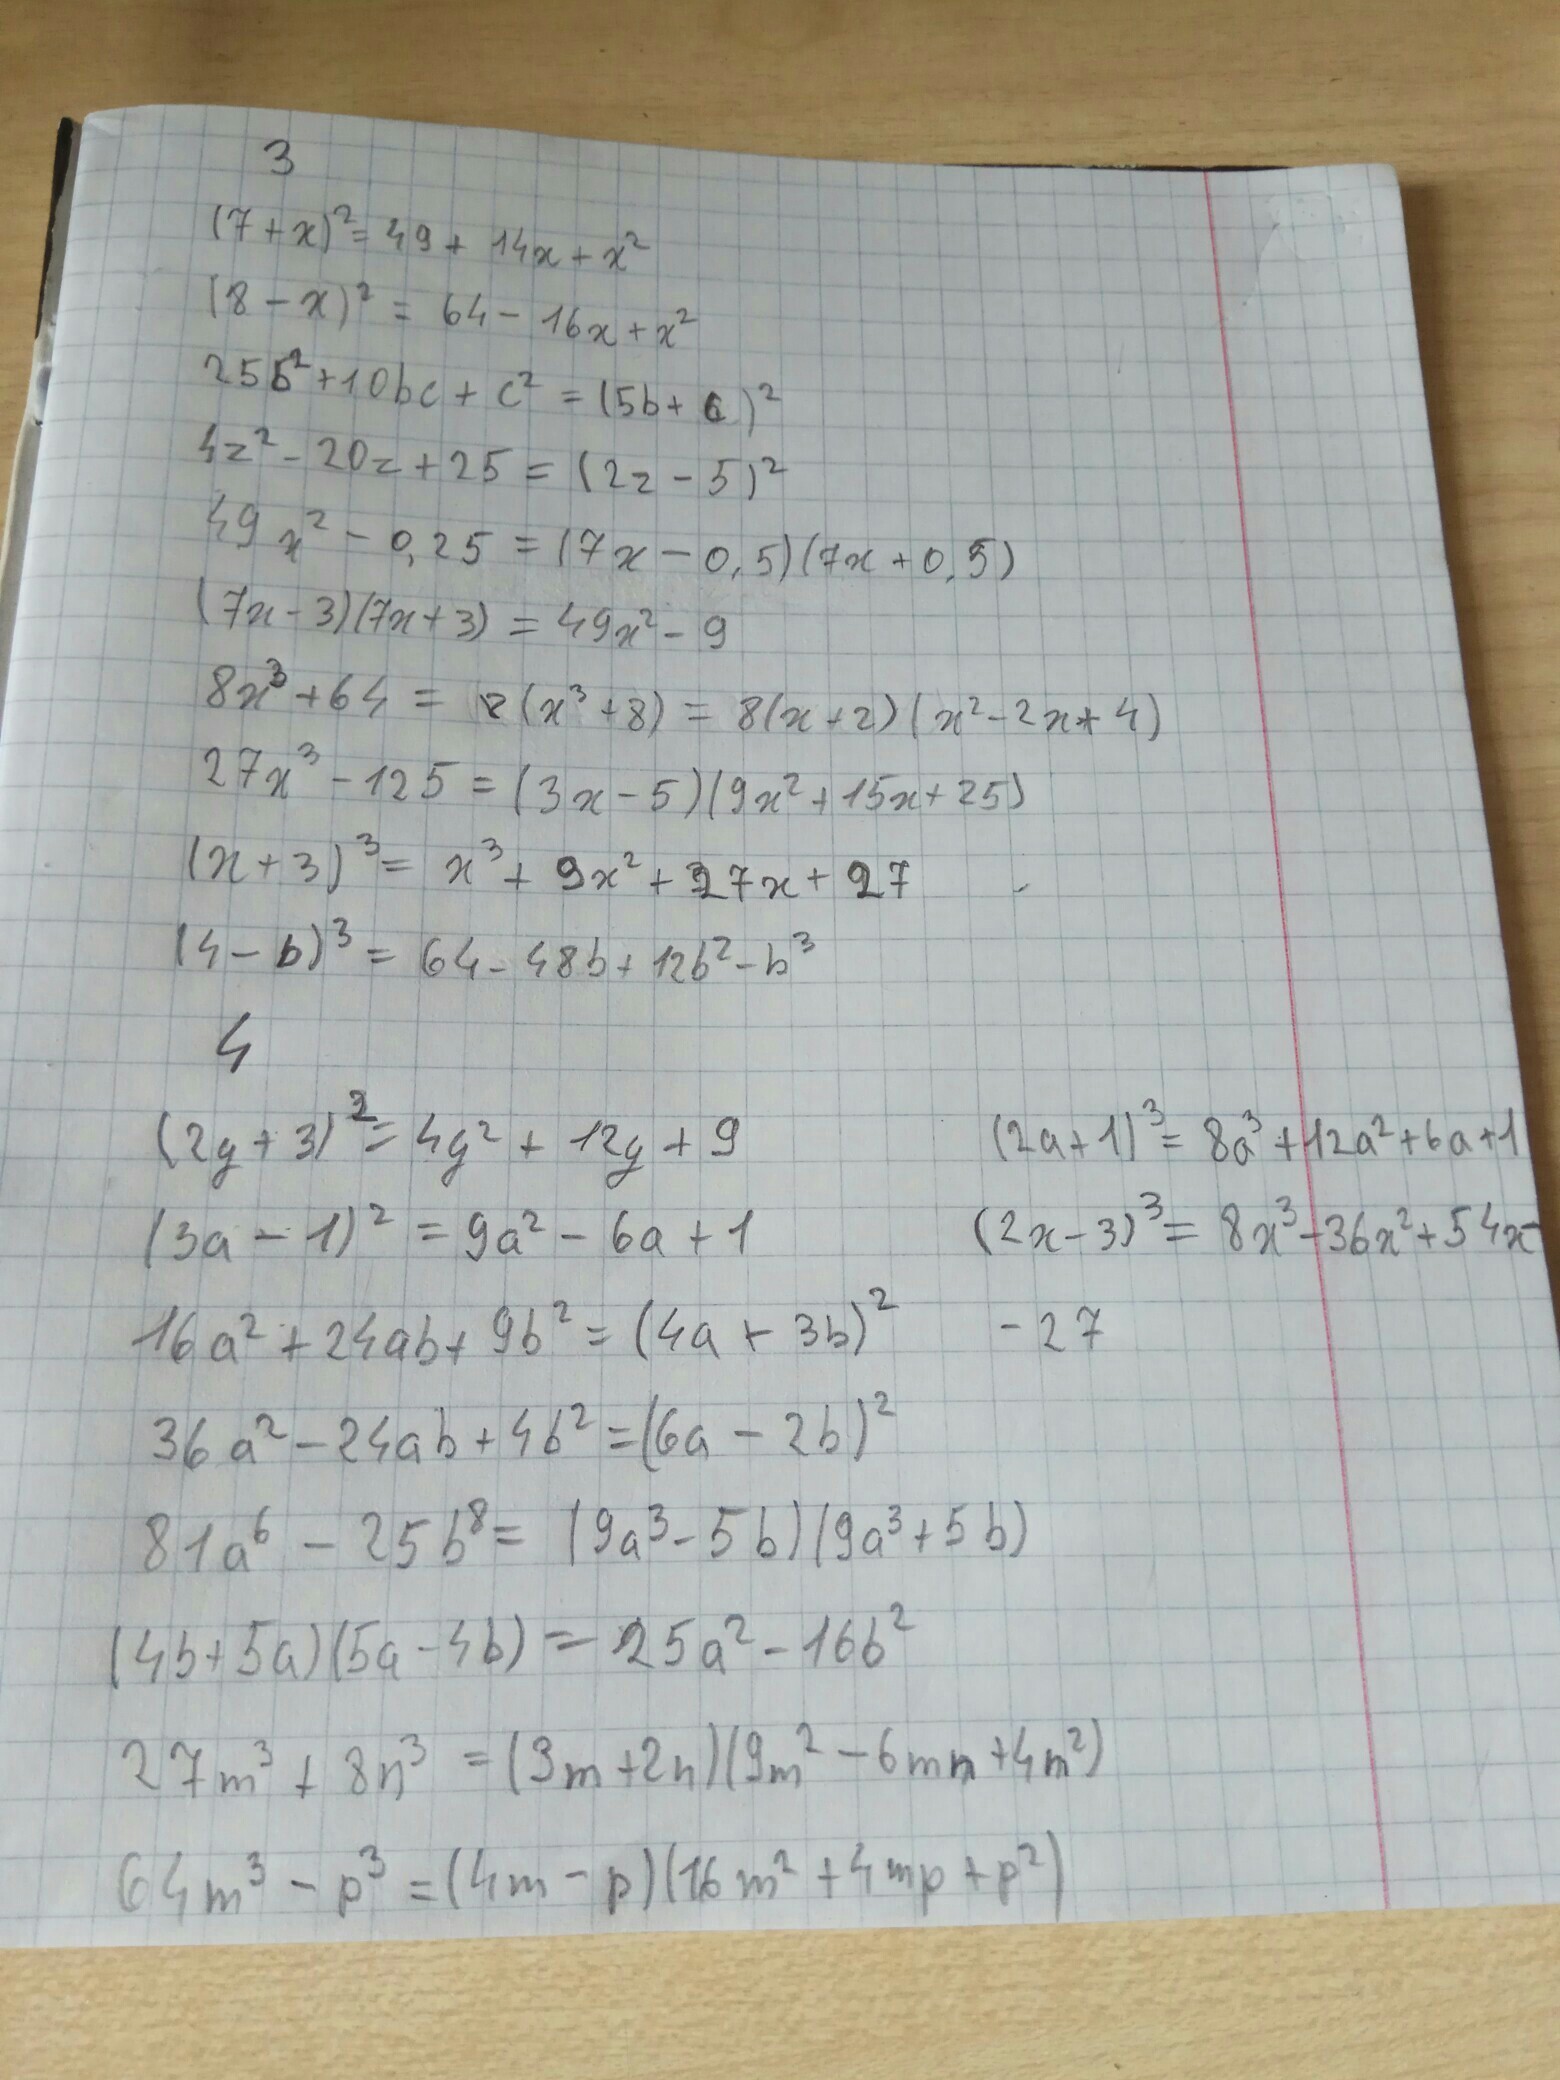 3
(7+x)²=49+14x+x²
(8-x)²=64-16x+x²
25b²+10bc+c²=(5b+c)²
4z²-20z+25=(2z-5)²
49x²-0,25=(7x-0,5)(7x+0,5)
(7x-3)(7x+3)=49x²-9
8x³+64=8(x³+8)=8(x+2)(x²-2x+4)
27x³-125=(3x-5)(9x²+15x+25)
(x+3)³=x³+9x²+27x+27
(4-b)³=64-48b+12b²-b³
4
(2y+3)²=4y²+12y+9
(3a-1)²=9a²-6a+1
16a²+24ab+9b²=(4a+3b)²
36a²-24ab+4b²=(6a-2b)²
81a⁶-25b⁸=(9a³-5b)(9a³+5b)
(4b+5a)(5a-4b)=25a²-16b²
27m³+8n³=(3m+2n)(9m²-6mn+4n²)
64m³-p³=(4m-p)(16m²+4mp+p²)
(2a+1)³=8a³+12a²+6a+1
(2x-3)³=8x³-36x²+54x-
-27